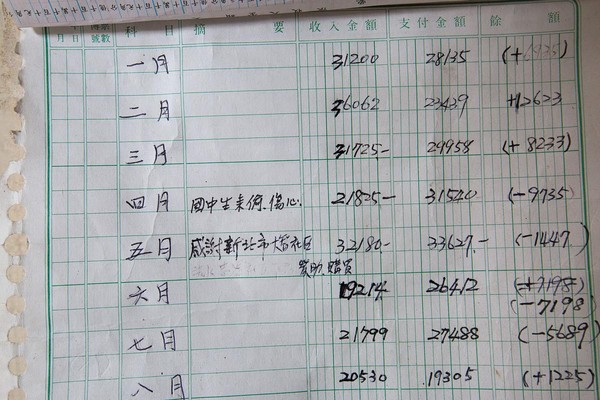 月 日 號數 科目 摘要 收入金額 支付金額 餘額
一月 31200 28135
二月 36062 23439 +12623
三月 31725- 29958 (+8233)
四月 國中生 傷心. 21825- 31540 (-9735)
五月 感謝新北市 社區 32180- 33627.- (-1447)
贊助.購買
六月 19214 26412 (-7198)
(-7198)
七月 21799 27488 (-5689)
八月 20530 19305 (+1225)